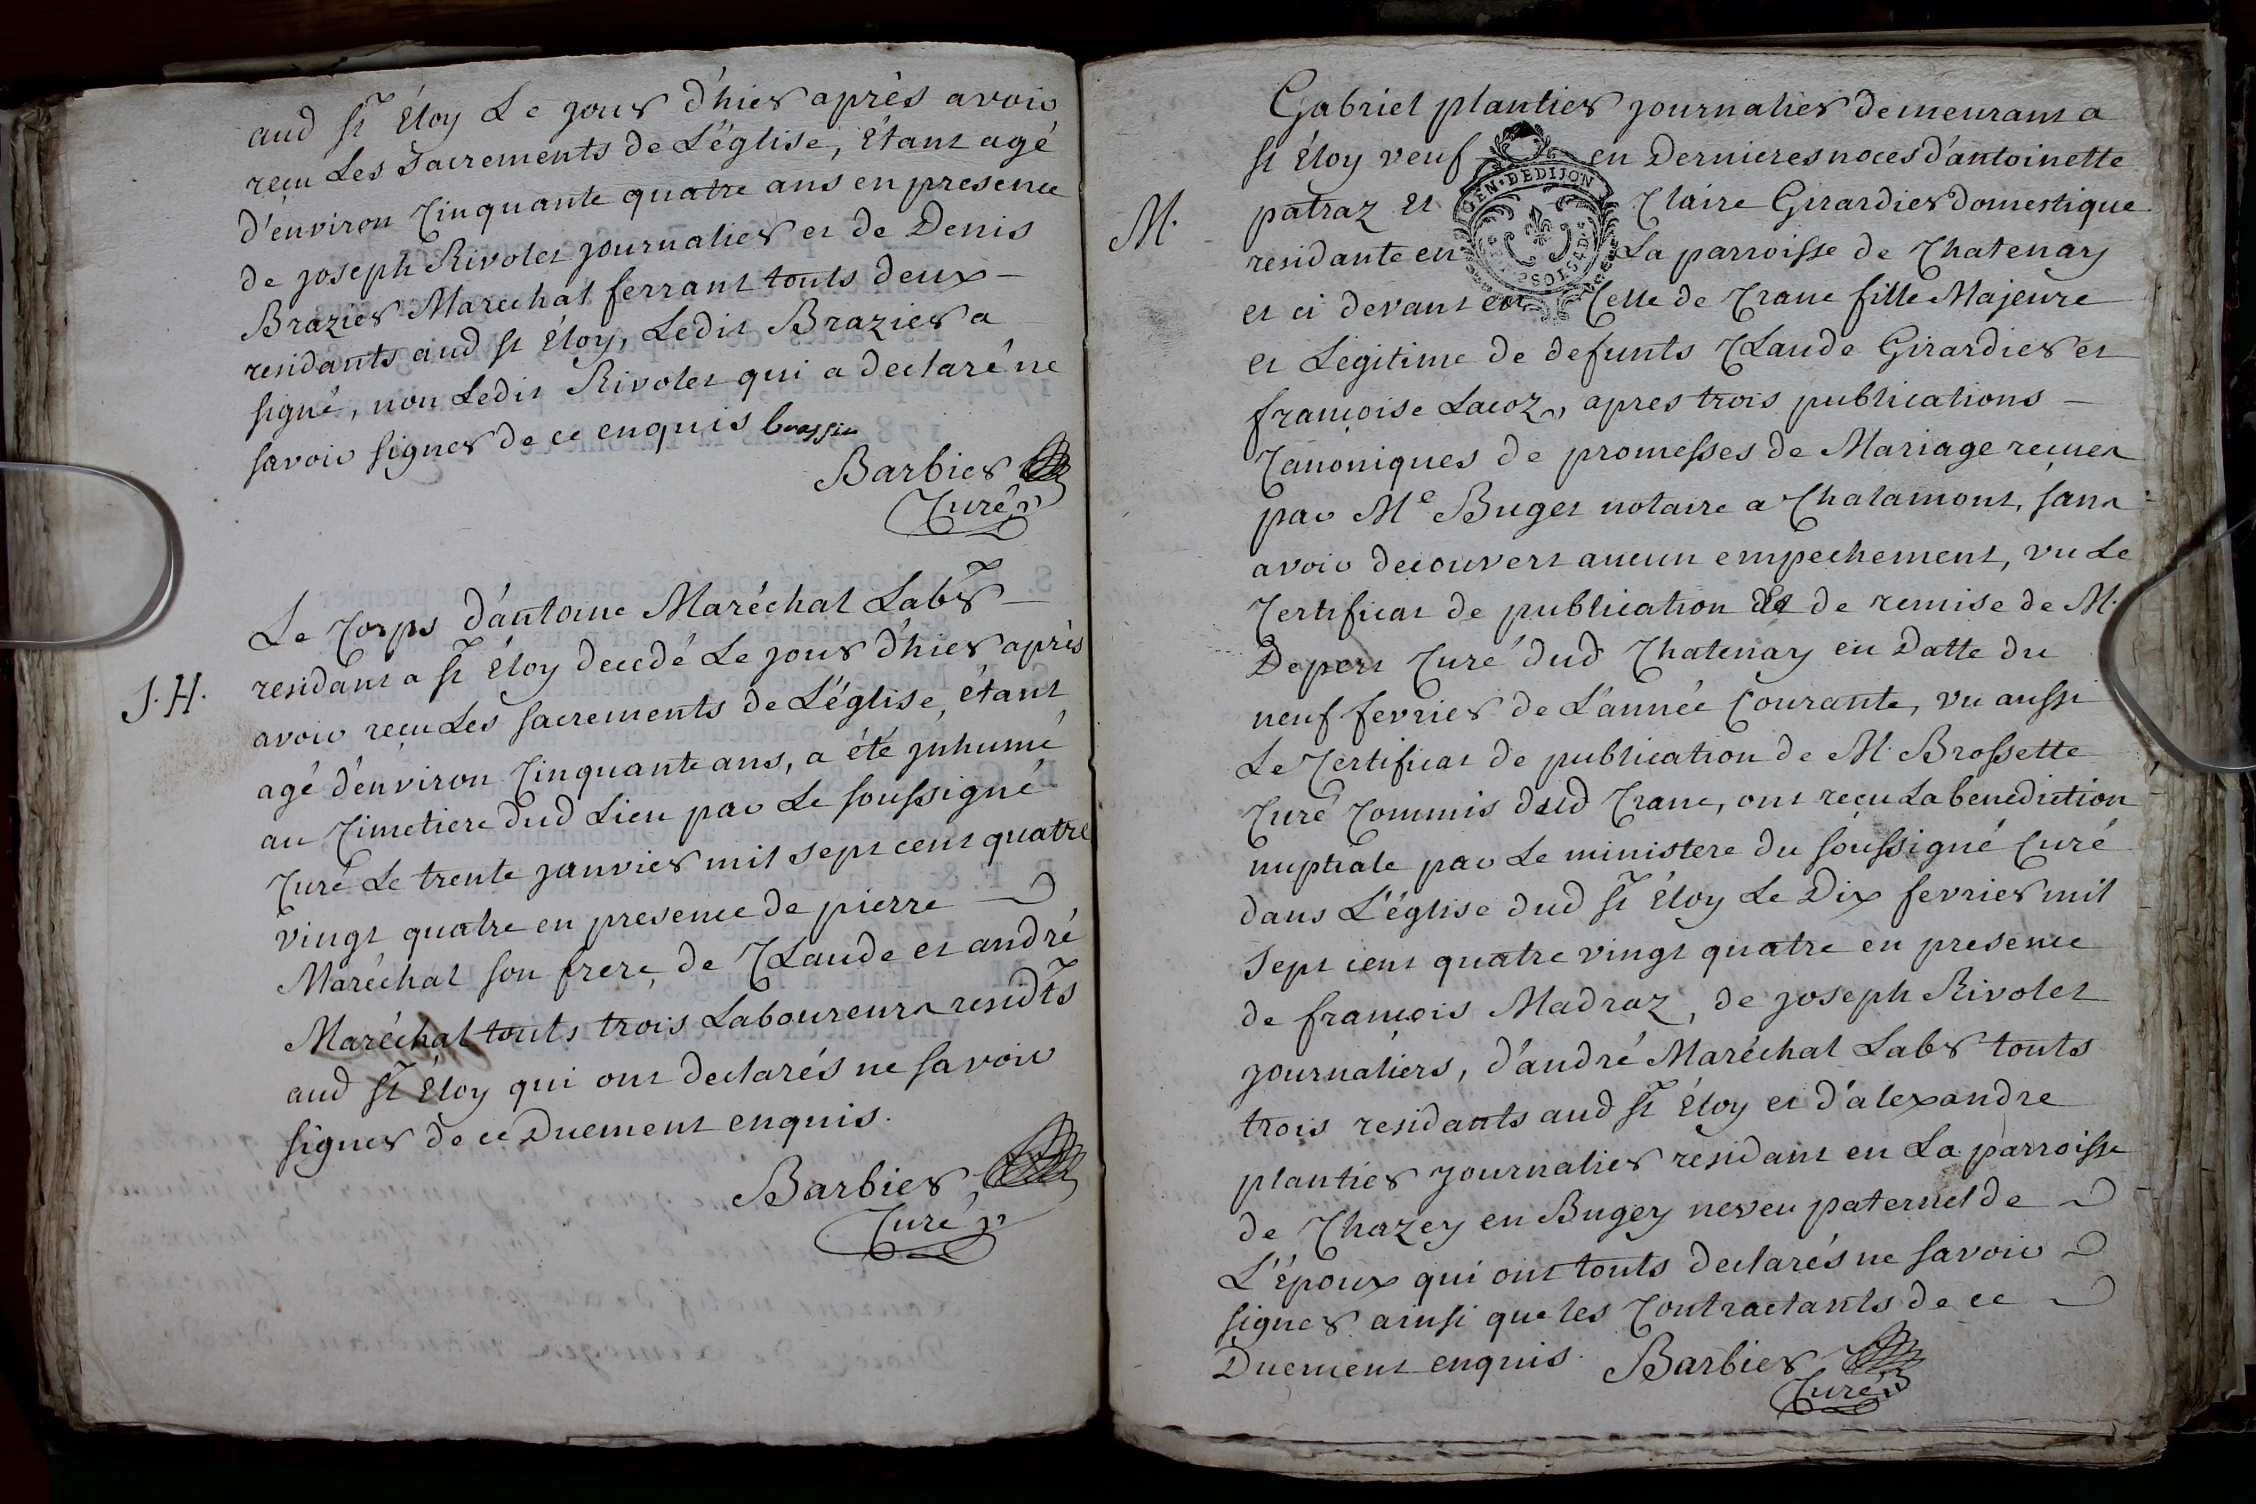 aud st Éloy Le jour d'hier après avoir
reçu Les Sacrements de L'église, étant agé
d'environ Cinquante quatre ans en presence
de joseph Rivolet journalier et de Denis
Brazier Marechal ferrant touts deux
residants aud st Éloy, Ledit Brazier a
signé, non Ledit Rivolet qui a declaré ne
savoir signer de ce enquis
Barbier
Curé
Le Corps d'antoine Maréchal Labr
residant a st Éloy decedé Le jour d'hier après
J.H.
avoir reçu Les sacrements de L'église, étant
agé d'environ Cinquante ans, a été jnhumé
au Cimetiere dud Lieu par Le soussigné
Curé Le trente janvier mil sept cent quatre
vingt quatre en presence de pierre
Maréchal son frere, de Claude et andré
Maréchal touts trois Laboureurs residts
aud st Éloy qui ont declarés ne savoir
signer de ce Duement enquis.
Barbier
Curé
Gabriel plantier journalier demeurant a
st Éloy veuf en Dernieres noces d'antoinette
GEN·DEDIJON
M.
patraz et Claire Girardier domestique
residante en La parroisse de Chatenay
et ci devant en Celle de Crane fille Majeure
et Légitime de defunts Claude Girardier et
françoise Lacoz, apres trois publications
Canoniques de promesses de Mariage reçues
par Me Buget notaire a Chalamont, sans
avoir decouvert aucun empechement, vu Le
Certificat de publication et de remise de M.
Depert Curé dud Chatenay en Datte du
neuf fevrier de L'année Courante, vu aussi
Le Certificat de publication de M. Brossette
Curé Commis dud Crane, ont reçu La benediction
nuptiale par Le ministere du soussigné Curé
dans L'église dud st Éloy Le Dix fevrier mil
sept cent quatre vingt quatre en presence
de françois Madraz, de joseph Rivolet
journaliers, d'andré Maréchal Labr touts
trois residants aud st Éloy et d'alexandre
plantier journalier residant en La parroisse
de Chazey en Bugey neveu paternel de
L'Époux qui ont touts declarés ne savoir
signer ainsi que les Contractants de ce
Duement enquis. Barbier
Curé